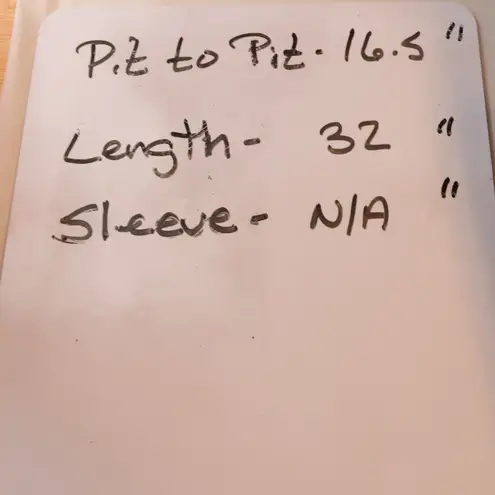 Pit to Pit - 16.5 "
Length - 32 "
Sleeve - N/A "